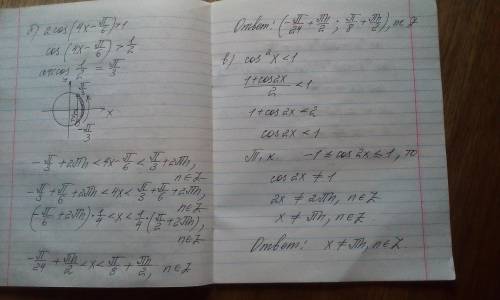 б) 2cos(4x - π/6) > 1
cos(4x - π/6) > 1/2
arccos 1/2 = π/3
y
π/3
x
-π/3
-π/3 + 2πn < 4x - π/6 < π/3 + 2πn,
n∈Z
-π/3 + π/6 + 2πn < 4x < π/3 + π/6 + 2πn,
n∈Z
(-π/6 + 2πn)·1/4 < x < 1/4·(π/2 + 2πn),
n∈Z
-π/24 + πn/2 < x < π/8 + πn/2, n∈Z
Ответ: (-π/24 + πn/2 ; π/8 + πn/2), n∈Z
в) cos²x < 1
(1+cos2x)/2 < 1
1+cos2x < 2
cos2x < 1
Т.к. -1 ≤ cos2x ≤ 1, то
cos2x ≠ 1
2x ≠ 2πn, n∈Z
x ≠ πn, n∈Z
Ответ: x ≠ πn, n∈Z.